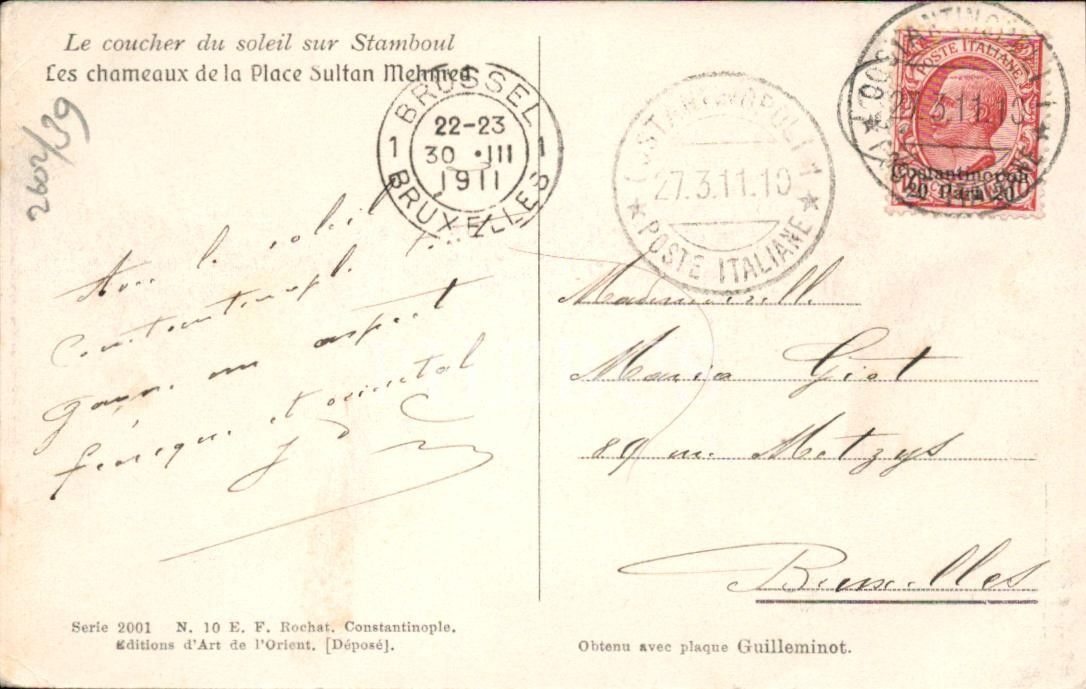 Le coucher du soleil sur Stamboul
Les chameaux de la Place Sultan Mehmed
2602/39
BRUSSEL
1 22-23 1
30 • III
1911
BRUXELLES
COSTANTINOPOLI 1
27.3.11.10
★ POSTE ITALIANE ★
COSTANTINOPOLI 1
27.3.11.10
★ POSTE ITALIANE ★
POSTE ITALIANE
Costantinopoli
20 Para 20
Avec le soleil
Constantinople
un aspect
féerique et oriental
Mademoiselle
Maria Giot
89 rue Metzys
Bruxelles
Serie 2001 N. 10 E. F. Rochat. Constantinople.
Editions d'Art de l'Orient. [Déposé].
Obtenu avec plaque Guilleminot.